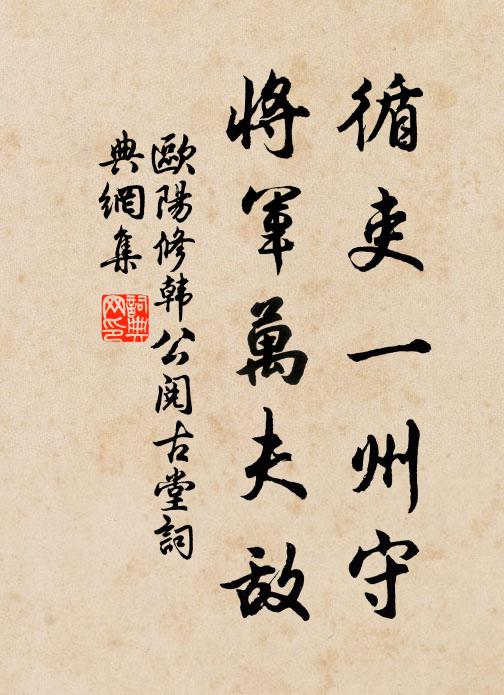 循吏一州守
將軍萬夫敌
歐陽修韩公阅古堂詞
典網集
詞典网印